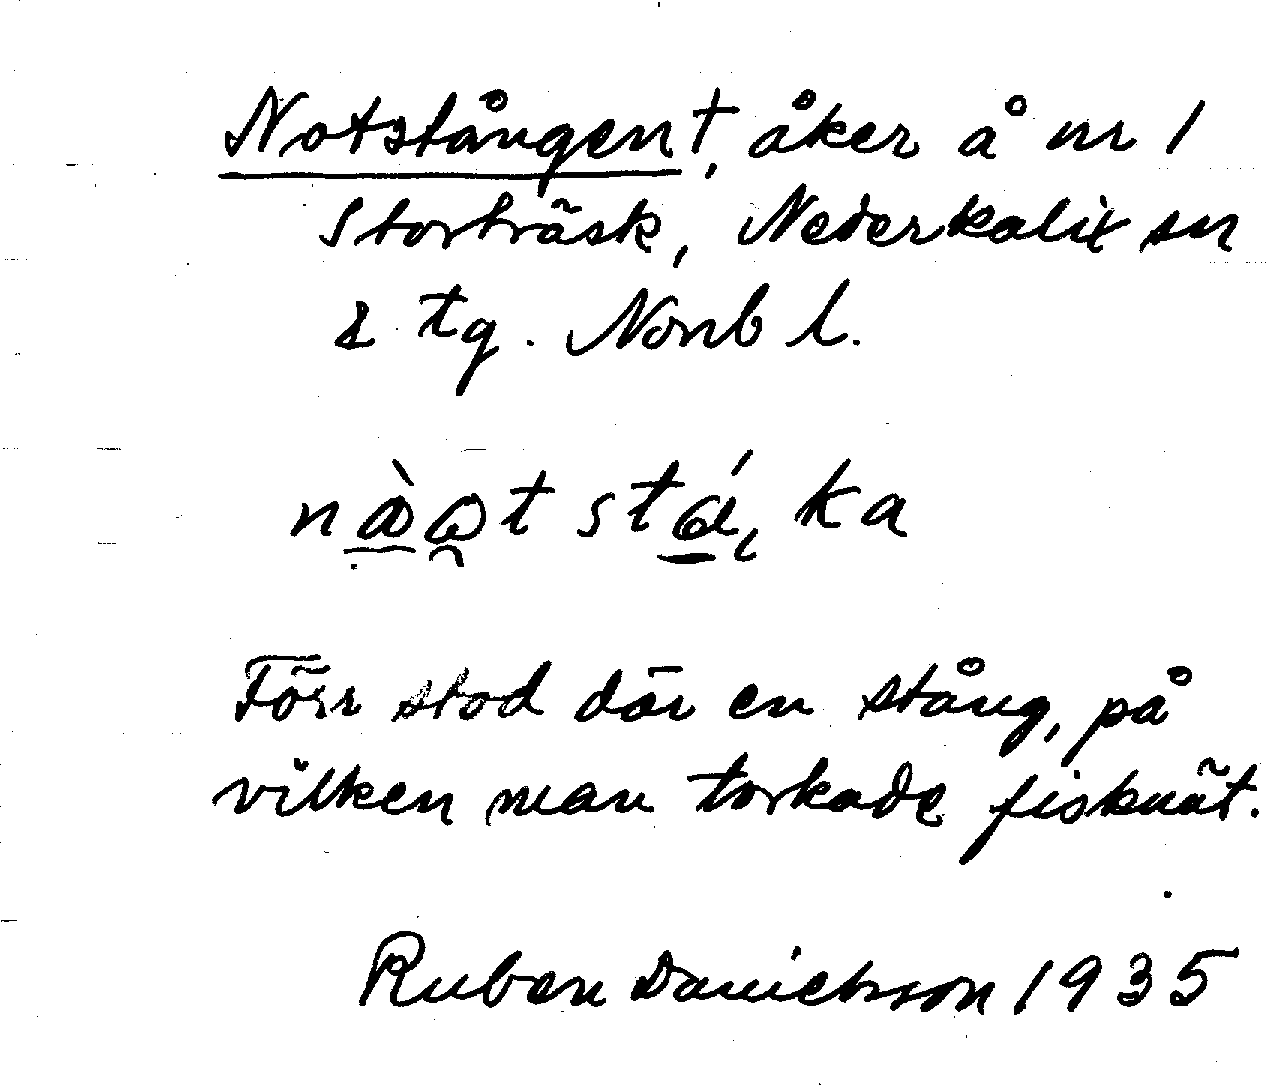 Notstången†, åker å nr 1
Storträsk, Nederkalix sn
& tg. Norrb l.
Förr stod där en stång, på
vilken man torkade fisknät.
Ruben Danielsson 1935